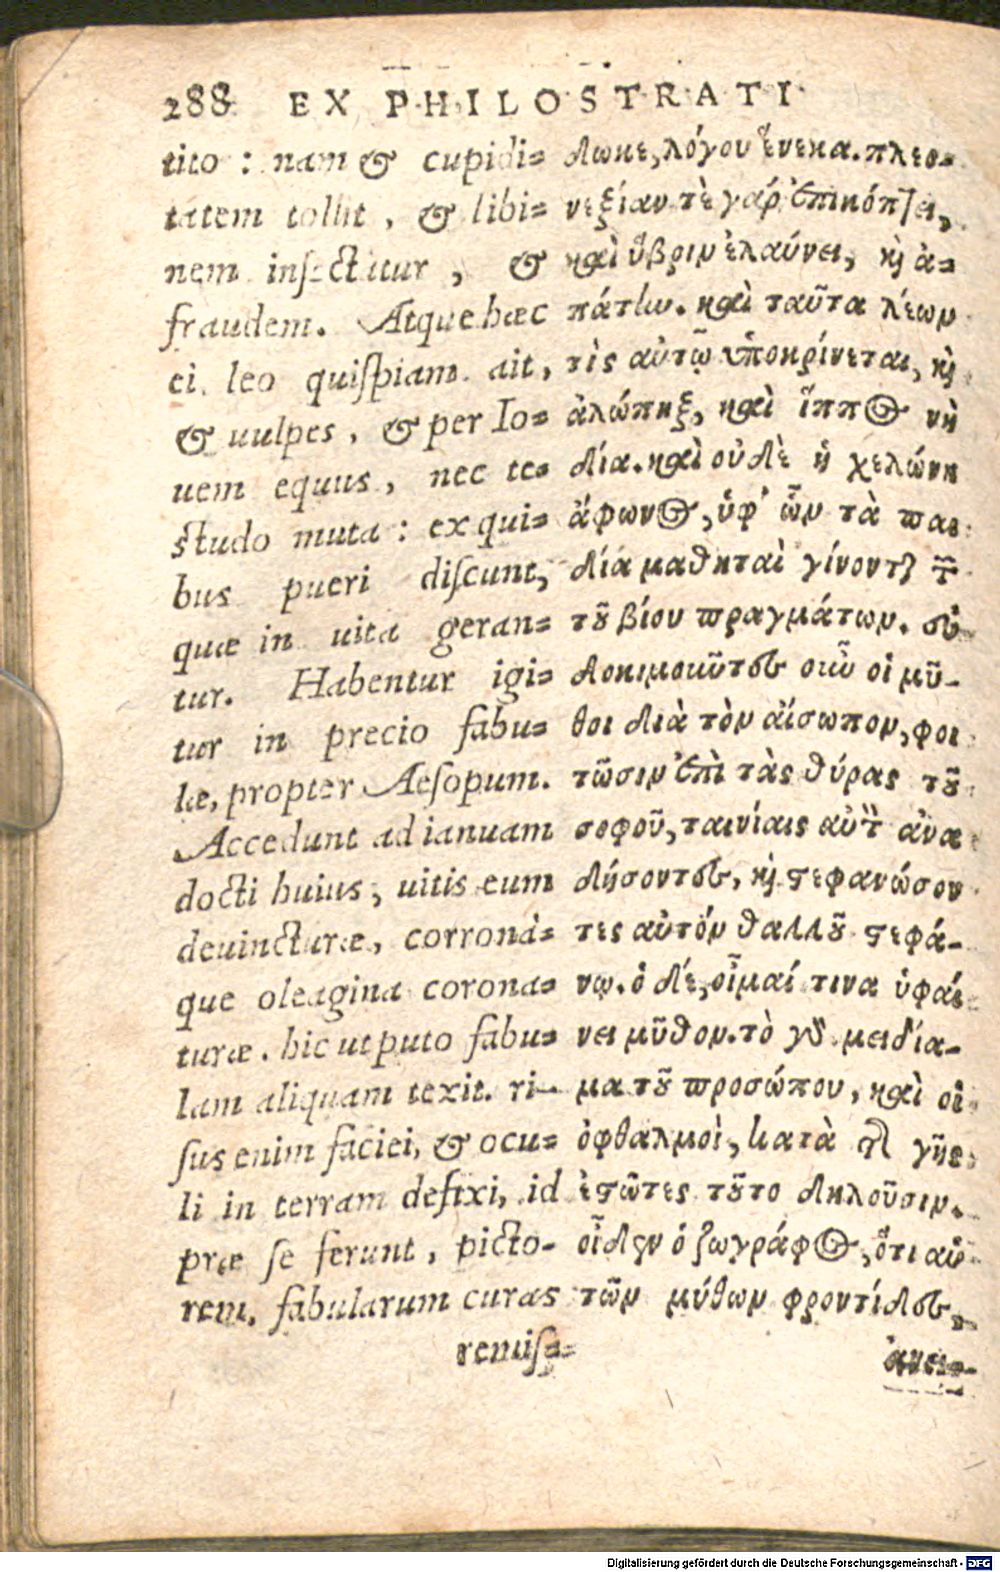 288 EX PHILOSTRATI
tito : nam & cupidi=
tatem tollit , & libi=
nem insectatur , &
fraudem. Atque hæc
ei leo quispiam ait,
& uulpes , & per Io=
uem equus , nec te=
studo muta : ex qui=
bus pueri discunt,
quæ in uita geran=
tur. Habentur igi=
tur in precio fabu=
læ, propter Aesopum.
Accedunt ad ianuam
docti huius, uitis eum
deuincturæ, corronà=
que oleagina corona=
turæ. hic ut puto fabu=
lam aliquam texit. ri-
sus enim faciei, & ocu=
li in terram defixi, id
præ se ferunt, picto-
rem, fabularum curas
remis=
δωκε, λόγου ἕνεκα. πλεο-
νεξίαν τὲ γάρ ἐπικόπτει,
καὶ ὕβριν ἐλαύνει, ϗ ἀ-
πάτην. καὶ ταῦτα λέων
τὶς αὐτῷ ὑποκρίνεται, ϗ
ἀλώπηξ, καὶ ἵππος νὴ
δία. καὶ οὐδὲ ἡ χελώνη
ἄφωνος, ὑφ’ ὧν τὰ παι
δία μαθηταὶ γίνονται τῶν
τοῦ βίου πραγμάτων. εὐ
δοκιμοῦντες οὖν οἱ μῦ-
θοι διὰ τὸν αἴσωπον, φοι
τῶσιν ἐπὶ τὰς θύρας τοῦ
σοφοῦ, ταινίαις αὐτὸν ἀνα
δήσοντες, ϗ στεφανώσον
τες αὐτόν θαλλοῦ στεφά-
νῳ. ὁ δέ, οἶμαί τινα ὑφαί
νει μῦθον. τὸ γὰρ μειδία-
μα τοῦ προσώπου, καὶ οἱ
ὀφθαλμοὶ, κατὰ τῆς γῆς
ἑστῶτες τοῦτο δηλοῦσιν.
οἶδεν ὁ ζωγράφος, ὅτι αἱ
τῶν μύθων φροντίδες,
ἀνει-
Digitalisierung gefördert durch die Deutsche Forschungsgemeinschaft - DFG